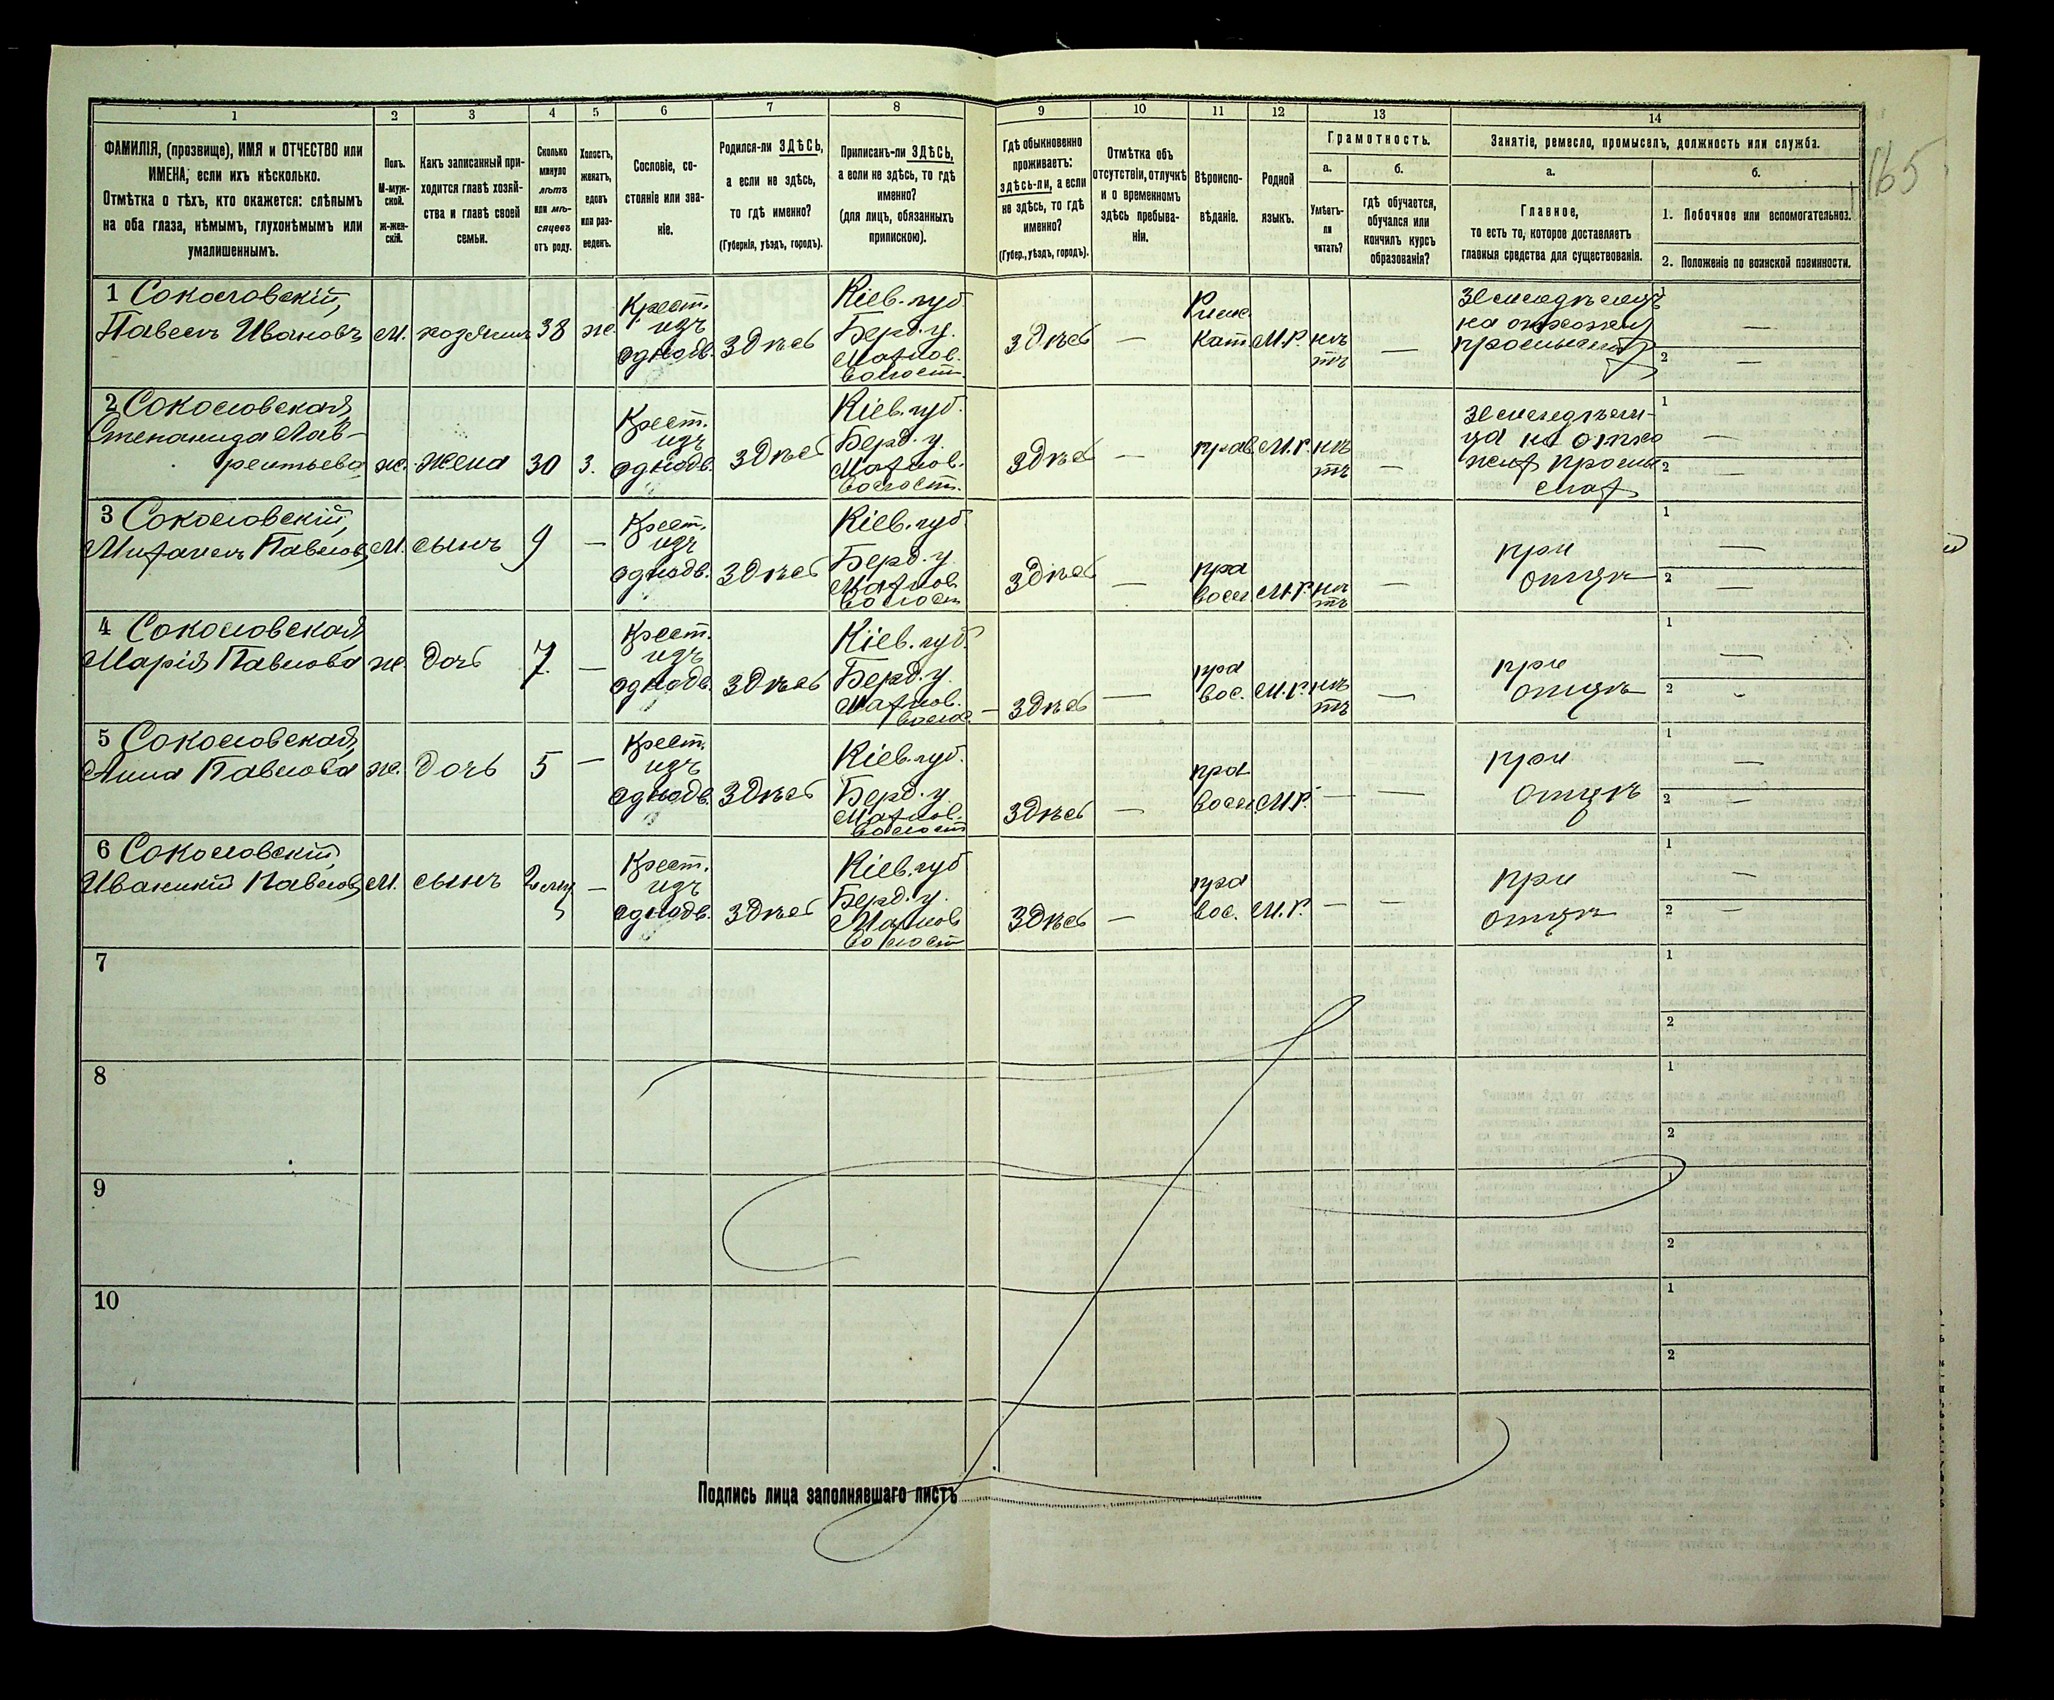 165
1 2 3 4 5 6 7 8 9 10 11 12 13 14
ФАМИЛІЯ, (прозвище), ИМЯ и ОТЧЕСТВО или
ИМЕНА, если ихъ нѣсколько.
Отмѣтка о тѣхъ, кто окажется: слѣпымъ
на оба глаза, нѣмымъ, глухонѣмымъ или
умалишеннымъ.
Полъ.
М-муж-
ской.
ж-жен-
скій.
Какъ записанный при-
ходится главѣ хозяй-
ства и главѣ своей
семьи.
Сколько
минуло
лѣтъ
или мѣ-
сяцевъ
отъ роду.
Холостъ,
женатъ,
вдовъ
или раз-
веденъ.
Сословіе, со-
стояніе или зва-
ніе.
Родился-ли ЗДѢСЬ,
а если не здѣсь,
то гдѣ именно?
(Губернія, уѣздъ, городъ).
Приписанъ-ли ЗДѢСЬ,
а если не здѣсь, то гдѣ
именно?
(для лицъ, обязанныхъ
припискою).
Гдѣ обыкновенно
проживаетъ:
здѣсь-ли, а если
не здѣсь, то гдѣ
именно?
(Губер., уѣздъ, городъ).
Отмѣтка объ
отсутствіи, отлучкѣ
и о временномъ
здѣсь пребыва-
ніи.
Вѣроиспо-
вѣданіе.
Родной
языкъ.
Грамотность.
а.
Умѣетъ-
ли
читать?
б.
гдѣ обучается,
обучался или
кончилъ курсъ
образованія?
Занятіе, ремесло, промыселъ, должность или служба.
а.
Главное,
то есть то, которое доставляетъ
главныя средства для существованія.
б.
1. Побочное или вспомогательное.
2. Положеніе по воинской повинности.
1 Соколовскій,
Павелъ Ивановъ
М.
хозяинъ
38
ж.
Крест.
изъ
однодв.
здѣсь
Кіев. губ
Берд. у.
Махнов.
Волост.
здѣсь
—
Римс.
Кат.
М.Р.
нѣ
тъ
—
земледѣлецъ
на отхожих
промыслах
1 —
2 —
2 Соколовская,
Степанида Лав-
рентьева
ж.
жена
30
з.
Крест.
изъ
однодв.
здѣсь
Кіев. губ.
Берд. у.
Махнов.
Волост.
здѣсь
—
прав.
М.Р.
нѣ
тъ
—
земледѣли-
ца на отхо
жих промы
слах
1 —
2 —
3 Соколовскій,
Михаилъ Павлов.
М.
сынъ
9
—
Крест.
изъ
однодв.
здѣсь
Кіев. губ
Берд. у
Махнов.
Волост
здѣсь
—
пра
восл
М.Р.
нѣ
тъ
—
при
отцѣ
1 —
2 —
4 Соколовская,
Марія Павлова
ж.
дочь
7.
—
Крест.
изъ
однодв.
здѣсь
Кіев. губ.
Берд. у.
Махнов.
волос.
здѣсь
—
пра
вос.
М.Р.
нѣ
тъ
—
при
отцѣ
1 —
2 -
5 Соколовская,
Анна Павлова
ж.
дочь
5
—
Крест.
изъ
однодв.
здѣсь
Кіев. губ.
Берд. у.
Махнов.
Волост
здѣсь
—
пра
восл
М.Р.
—
—
при
отцѣ
1 —
2 —
6 Соколовскій,
Иваникій Павлов,
М.
сынъ
—
Крест.
изъ
однодв.
здѣсь
Кіев. губ
Берд. у.
Махнов
Волост
здѣсь
—
пра
вос.
М.Р.
—
—
при
отцѣ
1 —
2 —
7
1
2
8
1
2
9
1
2
10
1
2
Подпись лица заполнявшаго листъ